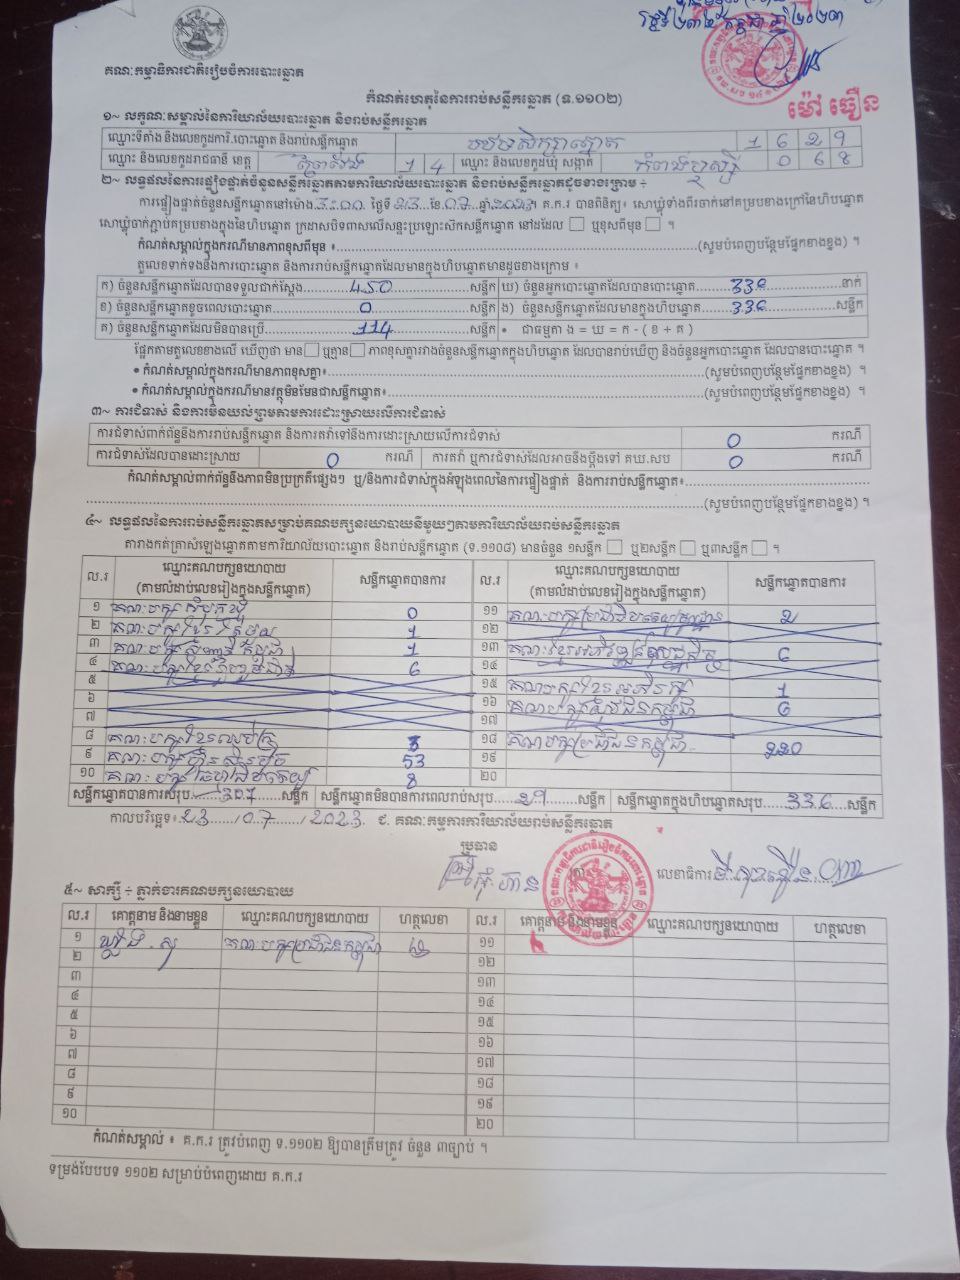 គណៈកម្មាធិការជាតិរៀបចំការបោះឆ្នោត
ម៉ៅ ធឿន
កំណត់ហេតុនៃការរាប់សន្លឹកឆ្នោត (ទ.១១០២)
១~ លក្ខណៈសម្គាល់នៃការិយាល័យបោះឆ្នោត និងរាប់សន្លឹកឆ្នោត
ឈ្មោះទីតាំង និងលេខកូដការិ.បោះឆ្នោត និងរាប់សន្លឹកឆ្នោត 1 6 2 9
ឈ្មោះ និងលេខកូដរាជធានី ខេត្ត ព្រៃវែង 1 4 ឈ្មោះ និងលេខកូដឃុំ សង្កាត់ កំពង់ឫស្សី 0 6 8
២~ លទ្ធផលនៃការផ្ទៀងផ្ទាត់ចំនួនសន្លឹកឆ្នោតតាមការិយាល័យបោះឆ្នោត និងរាប់សន្លឹកឆ្នោតដូចខាងក្រោម ÷
ការផ្ទៀងផ្ទាត់ចំនួនសន្លឹកឆ្នោតនៅម៉ោង 3:00 ថ្ងៃទី 23 ខែ 07 ឆ្នាំ 2023 ។ គ.ក.រ បានពិនិត្យ៖ សោឃ្លុំទាំងពីរចាក់នៅគម្របខាងក្រៅនៃហិបឆ្នោត
សោឃ្លុំចាក់ភ្ជាប់គម្របខាងក្នុងនៃហិបឆ្នោត ក្រដាសបិទពាសលើសន្ទះប្រឡោះស៊កសន្លឹកឆ្នោត នៅដដែល ឬខុសពីមុន ។
កំណត់សម្គាល់ក្នុងករណីមានភាពខុសពីមុន ៖ (សូមបំពេញបន្ថែមផ្នែកខាងខ្នង) ។
តួលេខទាក់ទងនឹងការបោះឆ្នោត និងការរាប់សន្លឹកឆ្នោតដែលមានក្នុងហិបឆ្នោតមានដូចខាងក្រោម ៖
ក) ចំនួនសន្លឹកឆ្នោតដែលបានទទួលជាក់ស្តែង 450 សន្លឹក ឃ) ចំនួនអ្នកបោះឆ្នោតដែលបានបោះឆ្នោត 336 នាក់
ខ) ចំនួនសន្លឹកឆ្នោតខូចពេលបោះឆ្នោត 0 សន្លឹក ង) ចំនួនសន្លឹកឆ្នោតដែលមានក្នុងហិបឆ្នោត 336 សន្លឹក
គ) ចំនួនសន្លឹកឆ្នោតដែលមិនបានប្រើ 114 សន្លឹក • ជាធម្មតា ង = ឃ = ក - ( ខ + គ )
ផ្អែកតាមតួលេខខាងលើ ឃើញថា មាន ឬគ្មាន ភាពខុសគ្នារវាងចំនួនសន្លឹកឆ្នោតក្នុងហិបឆ្នោត ដែលបានរាប់ឃើញ និងចំនួនអ្នកបោះឆ្នោត ដែលបានបោះឆ្នោត ។
• កំណត់សម្គាល់ក្នុងករណីមានភាពខុសគ្នា៖ (សូមបំពេញបន្ថែមផ្នែកខាងខ្នង) ។
• កំណត់សម្គាល់ក្នុងករណីមានវត្ថុមិនមែនជាសន្លឹកឆ្នោត៖ (សូមបំពេញបន្ថែមផ្នែកខាងខ្នង) ។
៣~ ការជំទាស់ និងការមិនយល់ព្រមតាមការដោះស្រាយលើការជំទាស់
ការជំទាស់ពាក់ព័ន្ធនឹងការរាប់សន្លឹកឆ្នោត និងការតវ៉ាទៅនឹងការដោះស្រាយលើការជំទាស់ 0 ករណី
ការជំទាស់ដែលបានដោះស្រាយ 0 ករណី ការតវ៉ា ឬការជំទាស់ដែលអាចនឹងប្តឹងទៅ គឃ.សប 0 ករណី
កំណត់សម្គាល់ពាក់ព័ន្ធនឹងភាពមិនប្រក្រតីផ្សេងៗ ឬ/និងការជំទាស់ក្នុងអំឡុងពេលនៃការផ្ទៀងផ្ទាត់ និងការរាប់សន្លឹកឆ្នោត៖
(សូមបំពេញបន្ថែមផ្នែកខាងខ្នង) ។
៤~ លទ្ធផលនៃការរាប់សន្លឹកឆ្នោតសម្រាប់គណបក្សនយោបាយនីមួយៗតាមការិយាល័យរាប់សន្លឹកឆ្នោត
តារាងកត់ត្រាសំឡេងឆ្នោតតាមការិយាល័យបោះឆ្នោត និងរាប់សន្លឹកឆ្នោត (ទ.១១០៨) មានចំនួន ១សន្លឹក ឬ២សន្លឹក ឬ៣សន្លឹក ។
ល.រ ឈ្មោះគណបក្សនយោបាយ (តាមលំដាប់លេខរៀងក្នុងសន្លឹកឆ្នោត) សន្លឹកឆ្នោតបានការ ល.រ ឈ្មោះគណបក្សនយោបាយ (តាមលំដាប់លេខរៀងក្នុងសន្លឹកឆ្នោត) សន្លឹកឆ្នោតបានការ
១ គណៈបក្សសំបុកឃ្មុំ 0 ១១ គណៈបក្សប្រជាធិបតេយ្យមូលដ្ឋាន 2
២ គណៈបក្សខ្មែររួបរួម 1 ១២
៣ គណៈបក្សសញ្ជាតិកម្ពុជា 1 ១៣ 6
៤ 6 ១៤
៥ ១៥ គណៈបក្សខ្មែរអភិរក្ស 1
៦ ១៦ 6
៧ ១៧
៨ គណៈបក្ស ១៨ គណៈបក្សប្រជាជនកម្ពុជា 220
៩ គណៈបក្សហ៊្វុនស៊ិនប៉ិច 53 ១៩
១០ គណៈបក្ស 8 ២០
សន្លឹកឆ្នោតបានការសរុប 307 សន្លឹក សន្លឹកឆ្នោតមិនបានការពេលរាប់សរុប 29 សន្លឹក សន្លឹកឆ្នោតក្នុងហិបឆ្នោតសរុប 336 សន្លឹក
កាលបរិច្ឆេទ៖ 23 / 07 / 2023 ជ. គណៈកម្មការការិយាល័យរាប់សន្លឹកឆ្នោត
ប្រធាន
លេខាធិការ
៥~ សាក្សី ÷ ភ្នាក់ងារគណបក្សនយោបាយ
ល.រ គោត្តនាម និងនាមខ្លួន ឈ្មោះគណបក្សនយោបាយ ហត្ថលេខា ល.រ គោត្តនាម និងនាមខ្លួន ឈ្មោះគណបក្សនយោបាយ ហត្ថលេខា
១ គណៈបក្សប្រជាជនកម្ពុជា ១១
២ ១២
៣ ១៣
៤ ១៤
៥ ១៥
៦ ១៦
៧ ១៧
៨ ១៨
៩ ១៩
១០ ២០
កំណត់សម្គាល់ ៖ គ.ក.រ ត្រូវបំពេញ ទ.១១០២ ឱ្យបានត្រឹមត្រូវ ចំនួន ៣ច្បាប់ ។
ទម្រង់បែបបទ ១១០២ សម្រាប់បំពេញដោយ គ.ក.រ